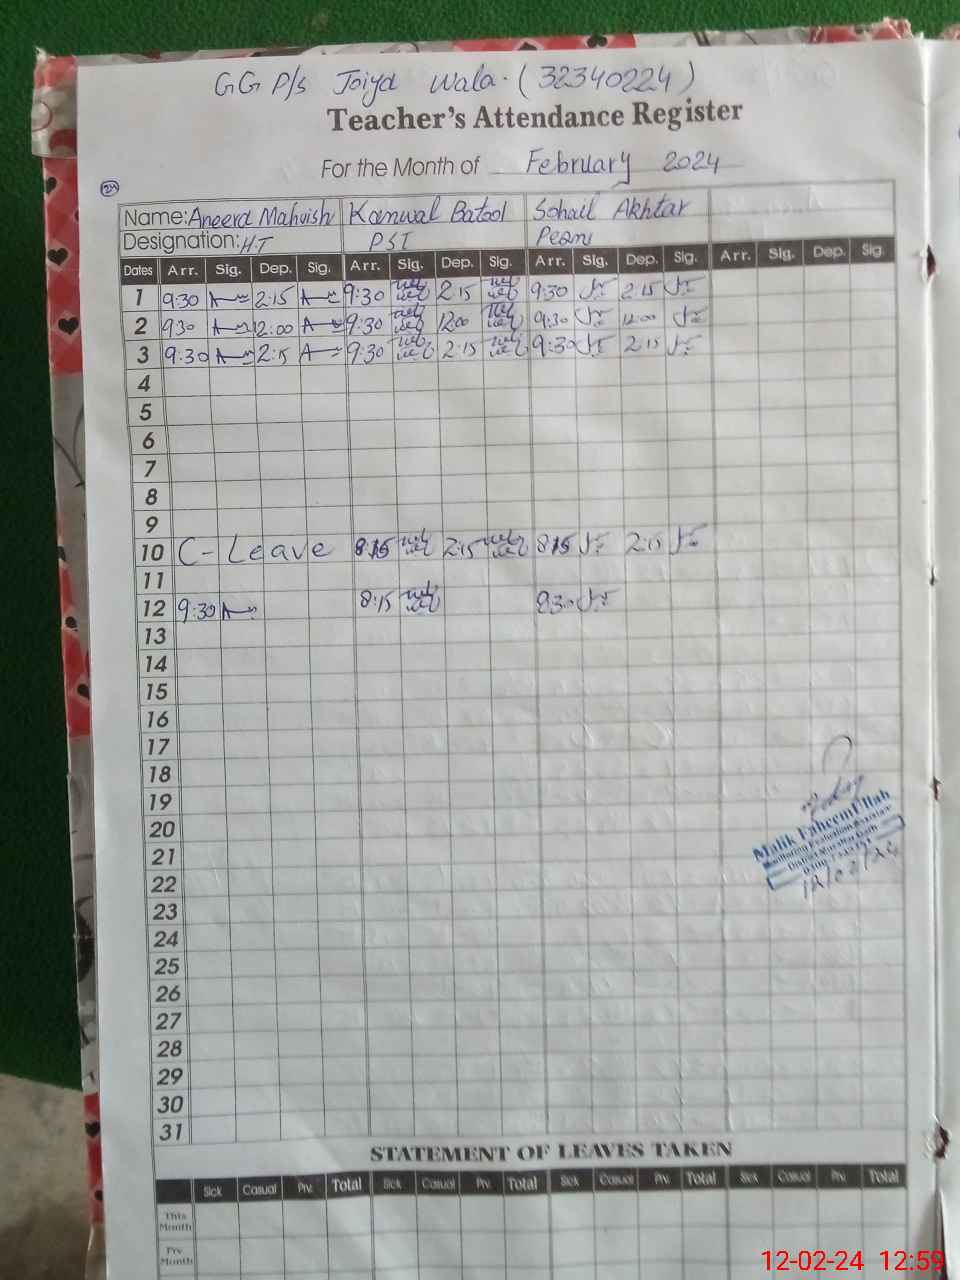 GG P/s Joiya Wala. (32340224)
Teacher's Attendance Register
For the Month of February 2024
Name: Aneera Mahvish Kanwal Batool Sohail Akhtar
Designation: H.T PST Peon
Dates Arr. Sig. Dep. Sig. Arr. Sig. Dep. Sig. Arr. Sig. Dep. Sig. Arr. Sig. Dep. Sig.
1 9:30 2:15 9:30 2:15 9:30 2:15
2 930 12:00 9:30 12:00 9:30 12:00
3 9:30 2:15 9:30 2:15 9:30 2:15
4
5
6
7
8
9
10 C-Leave 8:15 2:15 8:15 2:15
11
12 9:30 8:15 830
13
14
15
16
17
18
19
20
21
22
23
24
25
26
27
28
29
30
31
Malik Faheem Ullah
Monitoring Evaluation Assistant
District Muzaffar Garh
12/02/24
STATEMENT OF LEAVES TAKEN
Sick Casual Prv. Total Sick Casual Prv. Total Sick Casual Prv. Total Sick Casual Prv. Total
This Month
Prv Month
12-02-24 12:59